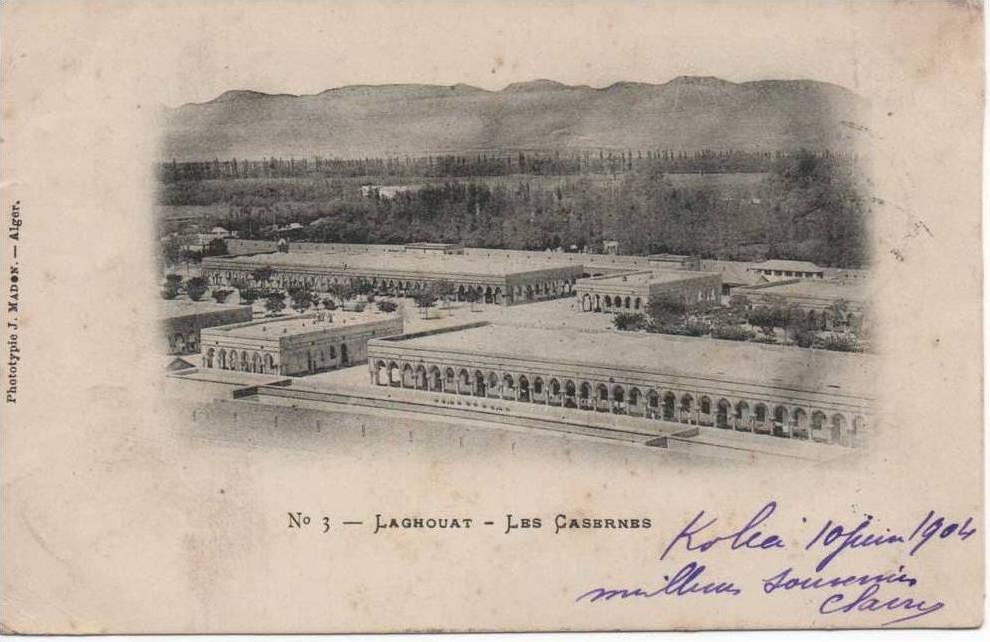 Phototypie J. MADON. — Alger.
No 3 — LAGHOUAT - LES CASERNES
Koléa 10 juin 1904
meilleurs souvenirs